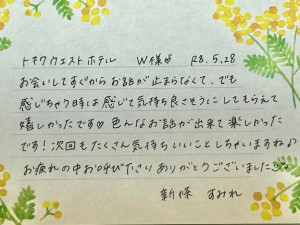 トキワウエストホテル W様♡ R8.5.28
お会いしてすぐからお話が止まらなくて、でも
感じちゃう時は感じて気持ち良さそうにしてもらえて
嬉しかったです♡色んなお話が出来て楽しかった
です!次回もたくさん気持ちいいことしちゃいますね♪
お疲れの中お呼び下さいありがとうございました
新條 すみれ